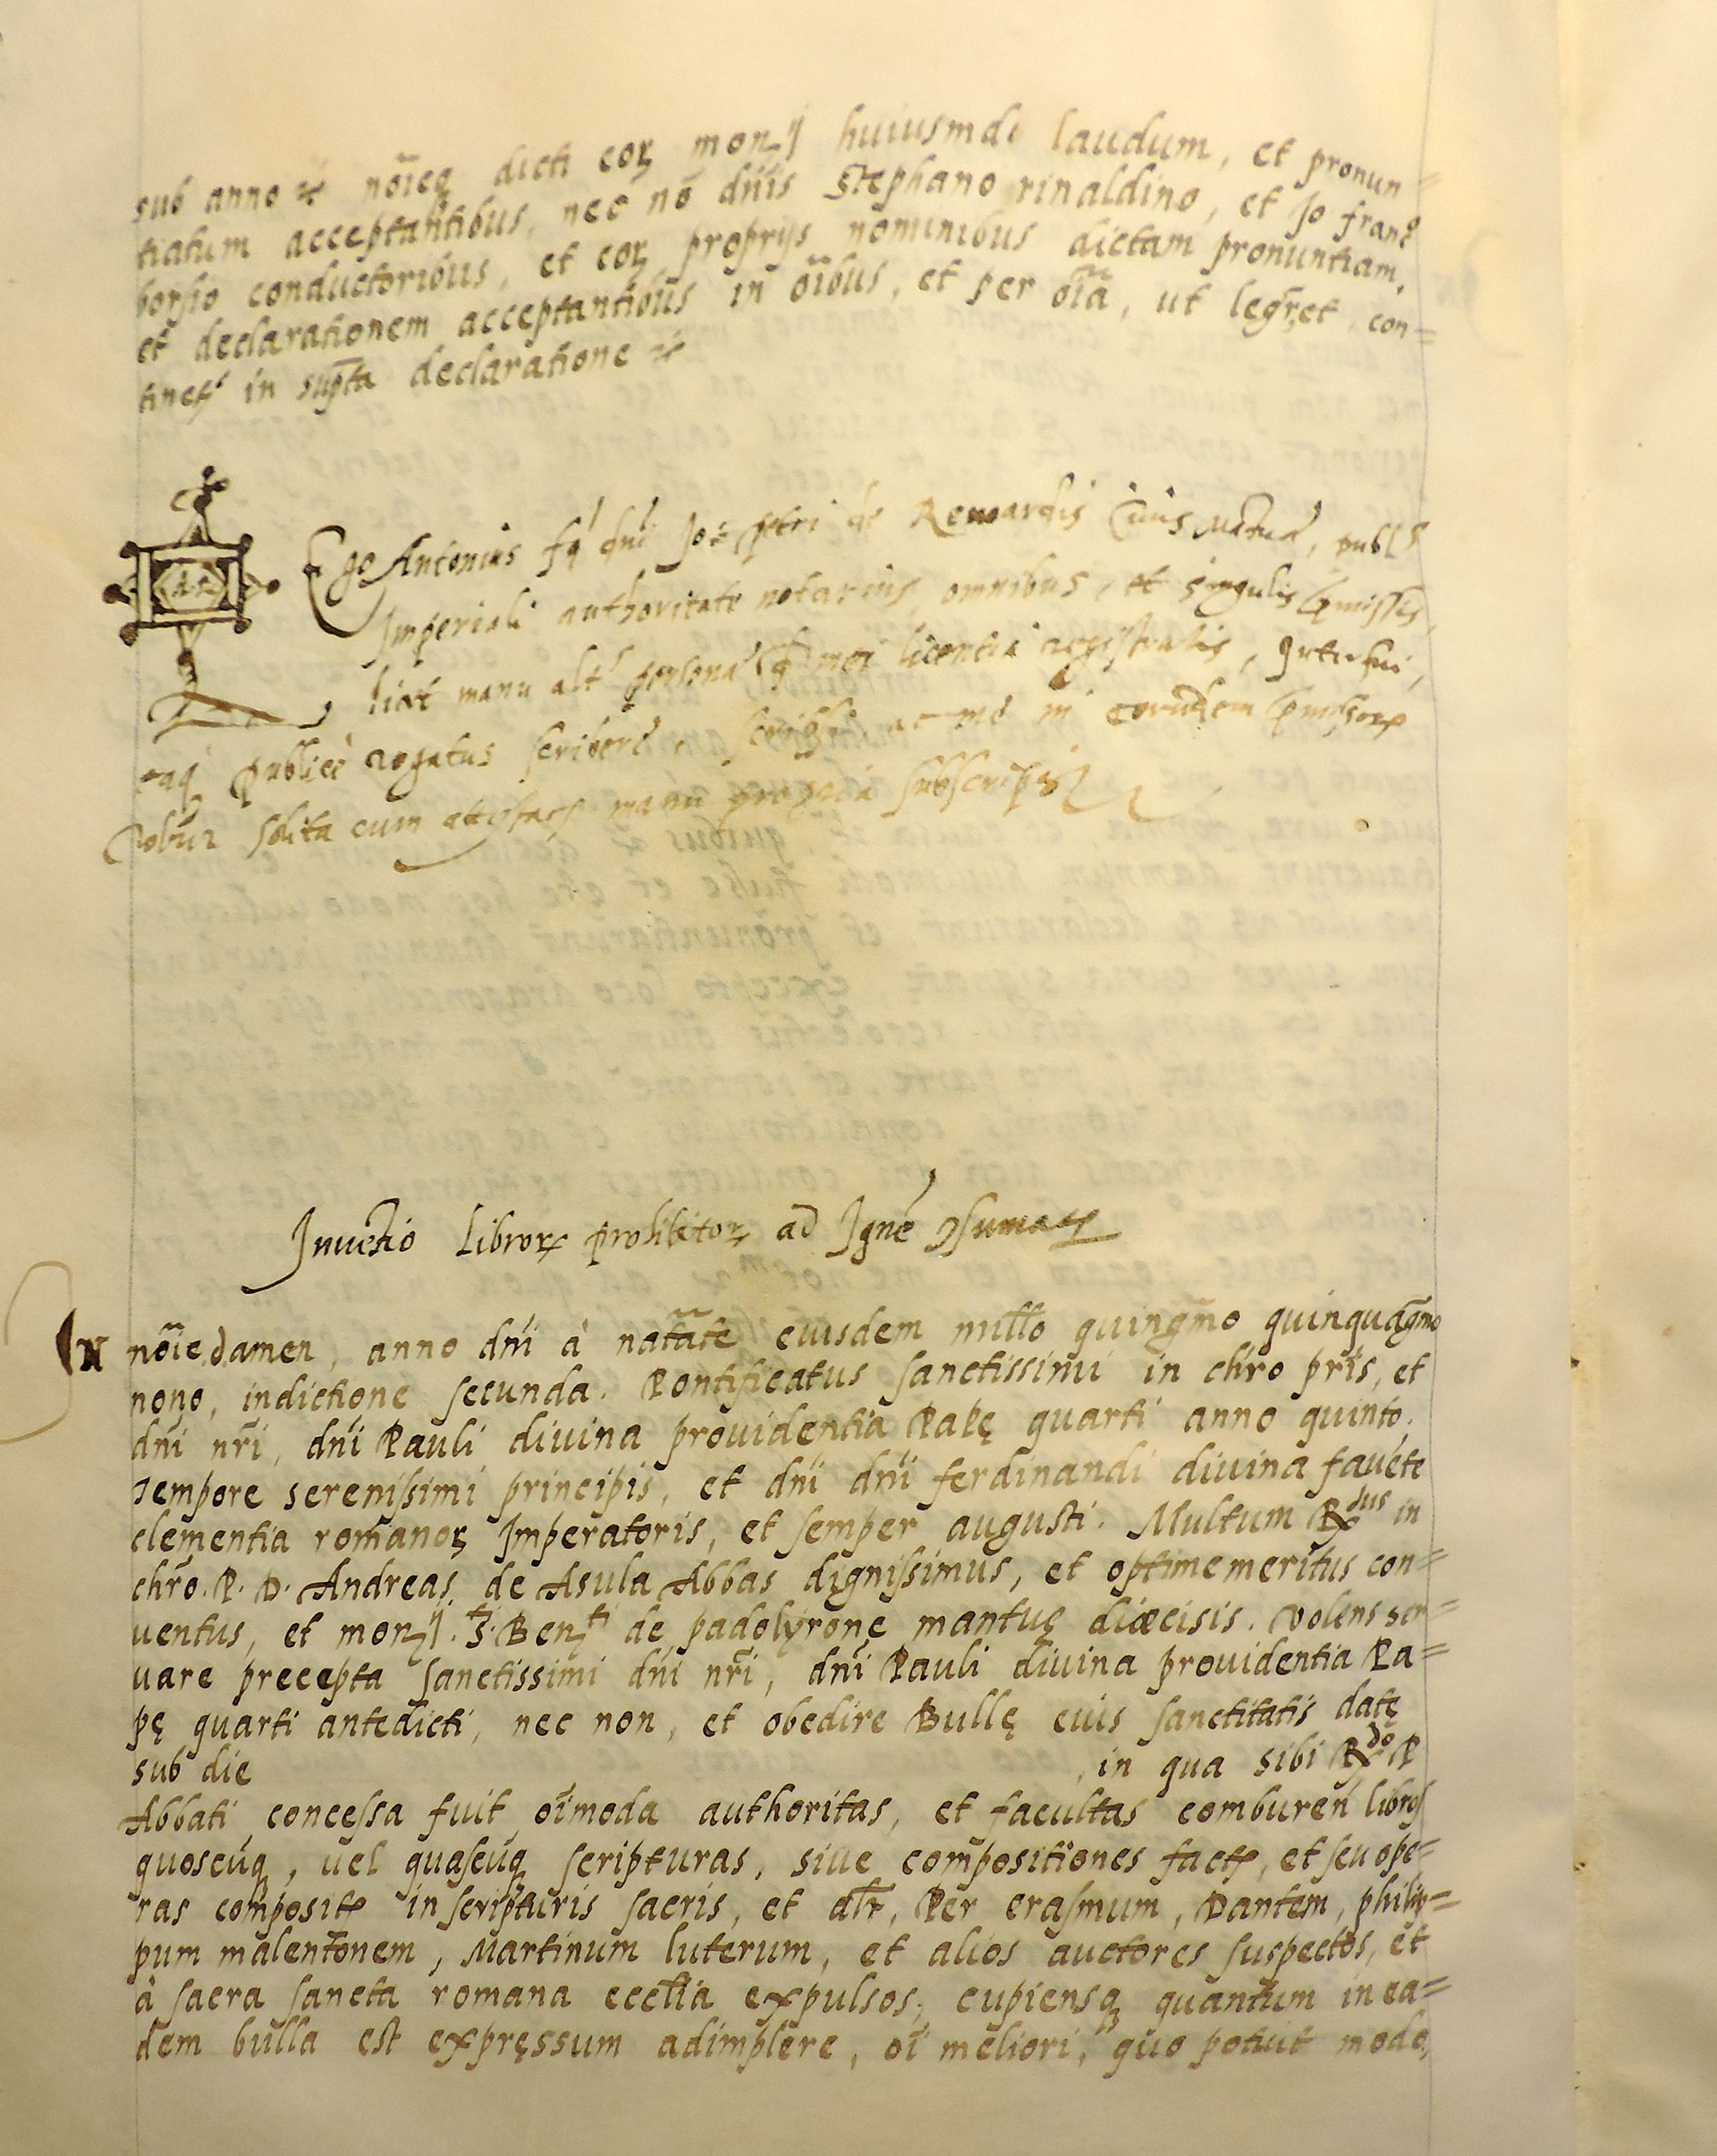 sub anno &c nõieq dicti coꝝ monrij huiusmdi laudum, et pronun=
tiatum acceptantibus, nec nõ dñis Stephano rinaldino, et Jo franc°
borsio conductoribus, et coꝝ proprijs nominibus dictam pronuntiam,
et declarationem acceptantibus in oĩbus, et per oĩa, ut legr̃, et con=
tinetr in supta declaratione &c
Ego Antonius fq dni Joẽ petri de Ciuis Mãtuæ, publs
Imperiali authoritate notarius omnibus, et singulis pmissis,
licet manu altr personæ mei licentia registratis, Interfui,
eaq publicè rogatus scribere, scripsi, ac me in eorũdem pmissoꝝ
Robur solita cum manu propria subscripsi
Inuẽtio Libroꝝ prohibitoꝝ ad Ignẽ ꝯsumatoꝝ
IN nõie d amen, anno dñi à natãte eiusdem millo quingmo quinquagmo
nono, indictione secunda. Pontificatus sanctissimi in chr̃o pris, et
dñi nr̃i, dñi Pauli diuina prouidentia Papę quarti anno quinto.
Tempore serenissimi principis, et dñi dñi ferdinandi diuina fauẽte
clementia romanoꝝ Imperatoris, et semper augusti. Multum Rdus in
chr̃o. P. D. Andreas de Asula Abbas dignissimus, et optime meritus con=
uentus, et monrij. Sti. Benti de padolyrone mantuę diœcisis. Volens ser=
uare precepta sanctissimi dñi nr̃i, dñi Pauli diuina prouidentia Pa=
pę quarti antedicti, nec non, et obedire Bullę euis sanctitatis datę
sub die , in qua sibi Rdo P
Abbati concessa fuit oĩmoda authoritas, et facultas comburen̄ libros
quoscũq, uel quascũq scripturas, siue compositiones fact&, et seu ope=
ras composit& in scripturis sacris, et altr, Per erasmum, Dantem, philip=
pum malentonem, Martinum luterum, et alios auctores suspectos, et
à sacra sancta romana ecclia expulsos, cupiensq quantum in ea=
dem bulla est expressum adimplere, oĩ meliori, quo potuit modo,